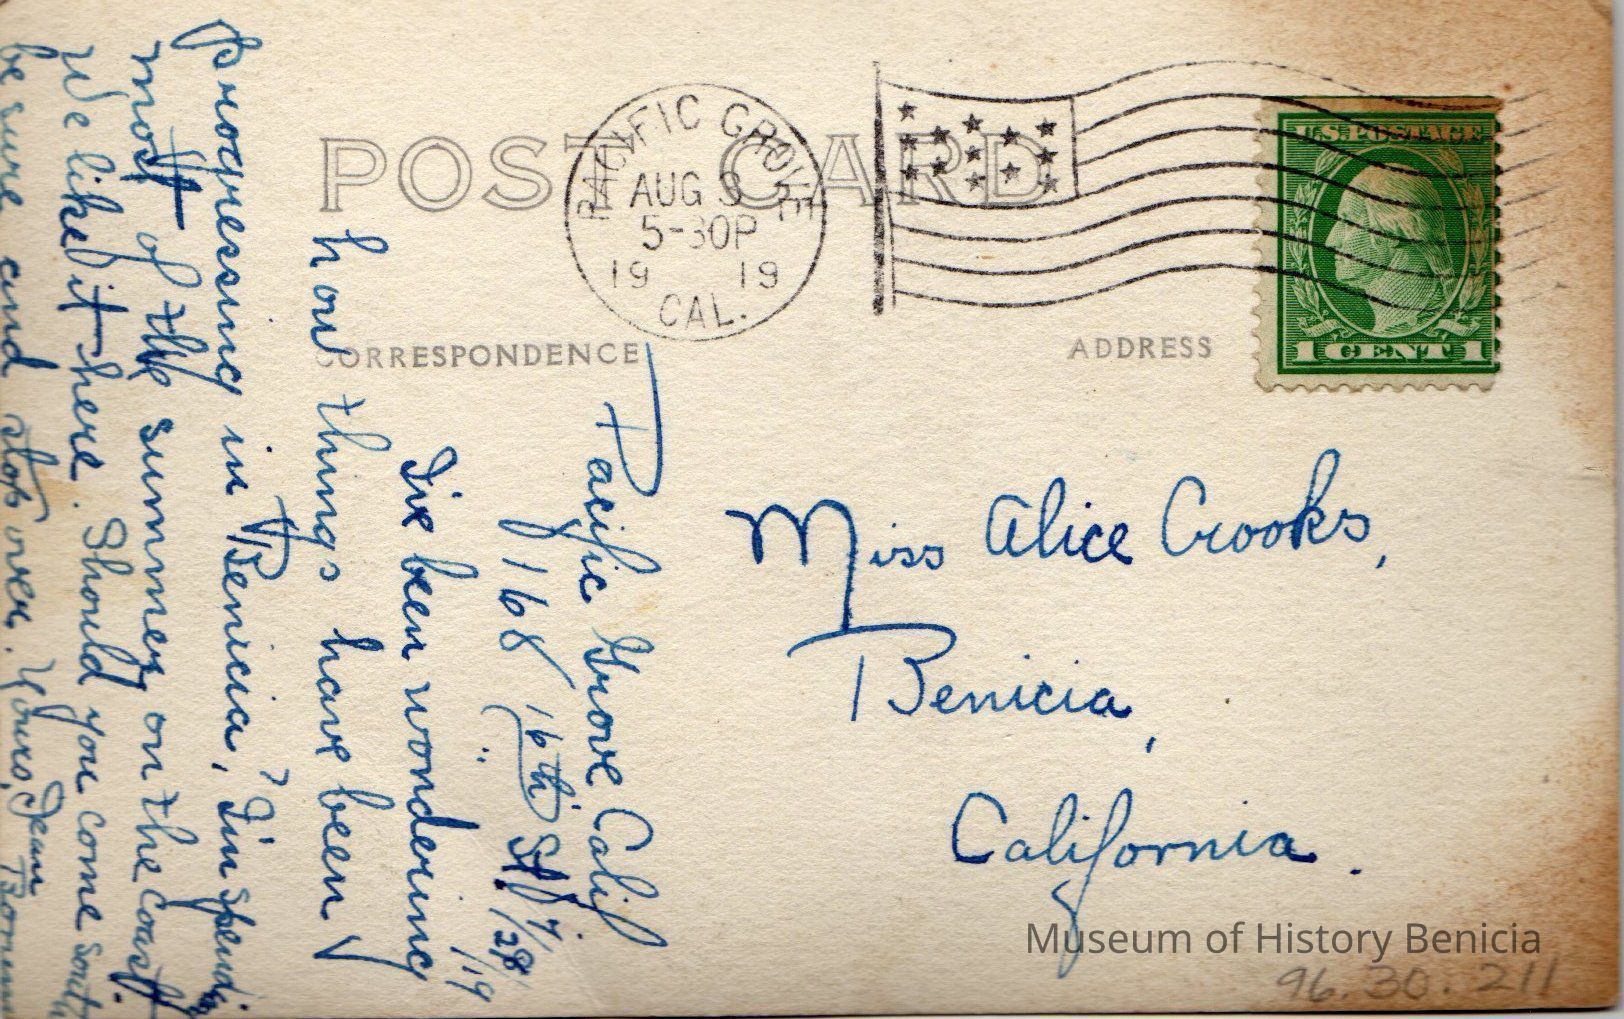 POST CARD
PACIFIC GROVE
AUG 9
5-30P
1919
CAL.
U.S. POSTAGE
1 CENT 1
CORRESPONDENCE
ADDRESS
Pacific Grove Calif
168 16th St 7/28/19
I've been wondering
how things have been
progressing in Benicia? I'm spending
most of the summer on the coast.
We like it here. Should you come south
be sure and stop over. Yours, Jean
Miss Alice Crooks,
Benicia,
California.
Museum of History Benicia
96.30.211